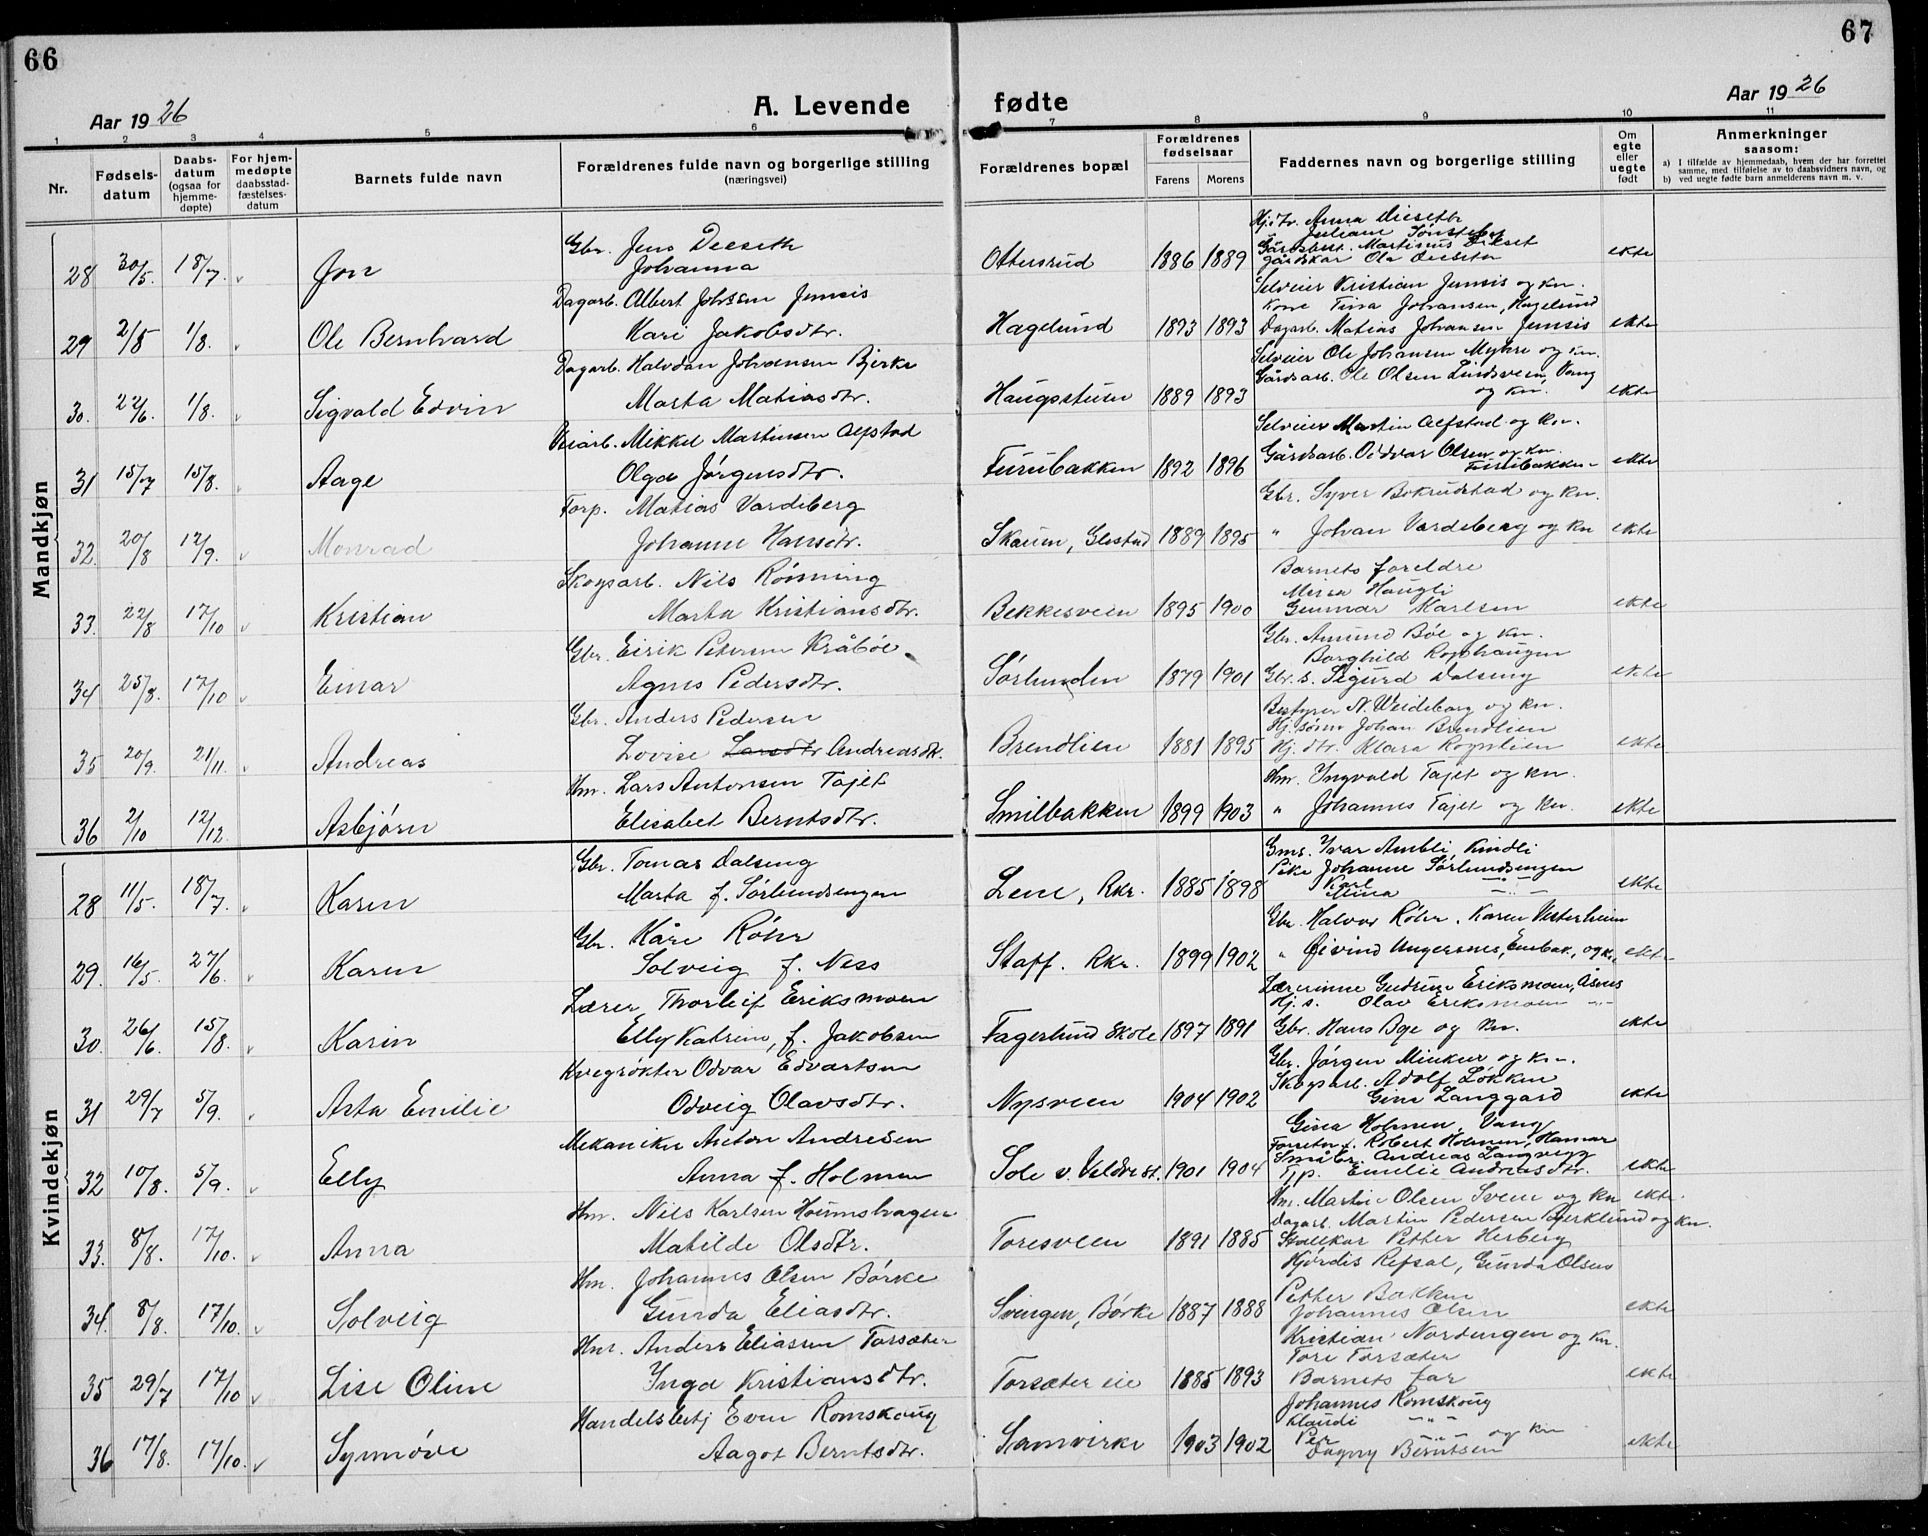 66
67
Aar 1926
A. Levende fødte
Aar 1926
1 2 3 4 5 6 7 8 9 10 11
Nr.
Fødsels-datum
Daabs-datum (ogsaa for hjemme-døpte)
For hjem-medøpte daabsstad-fæstelses-datum
Barnets fulde navn
Forældrenes fulde navn og borgerlige stilling (næringsvei)
Forældrenes bopæl
Forældrenes fødselsaar
Farens Morens
Faddernes navn og borgerlige stilling
Om egte eller uegte født
Anmerkninger saasom:
a) I tilfælde av hjemmedaab, hvem der har forrettet samme, med tilføielse av to daabsvidners navn, og
b) ved uegte fødte barn anmelderens navn m. v.
Mandkjøn
Gbr. Jens Deeseth Hj.dtr. Anna Dieseth
Juliane
28 30/5. 18/7. v Jon Johanna Ottersrud 1886 1889 Gårdsbest. Martinus Dieset
Gårdskar Ola Dieseth ekte
Dagarb. Albert Johsen Jemsis Selveier Kristian Jemsis og kn.
Kone Tina Johansen, Hagelund
29 2/5 1/8. v Ole Bernhard Kari Jakobsdtr. Hagelund 1893 1893 Dagarb. Matias Johansen Jemsis ekte
Dagarb. Halvdan Johansen Bjerke Selveier Ole Johansen Myhre og kn.
30. 22/6. 1/8. v Sigvald Edvin Marta Matiasdtr. Haugstuen 1889 1893 Gårdsarb. Ole Olsen Lindsveen, Vang
og kn. ekte
Veiarb. Mikkel Martinsen Alfstad Selveier Martin Alfstad og kn.
31 15/7 15/8. v Aage Olga Jørgensdtr. Furubakken 1892 1896 Gårdsarb. Oddvar Olsen og kn.
Furubakken ekte
Forp. Matias Vardeberg Gbr. Syver Bokrudstad og kn.
32. 20/8 12/9. v Monrad Johanne Hansdtr. Skauen, Glestad 1889 1895 " Johan Vardeberg og kn ekte
Skogsarb. Nils Rønning Barnets foreldre
Mina Haugli
33. 22/8 17/10 v Kristian Marta Kristiansdtr. Bekkesveen 1895 1900 Gunnar Karlsen ekte
Gbr. Eirik Petersen Kråbøl Gbr. Amund Bøe og kn.
Borghild Rognhaugen
34 25/8. 17/10 v Einar Agnes Pedersdtr. Sørlunden 1879 1901 Gbr. s. Sigurd Dalseng ekte
Gbr. Anders Pedersen Bestyrer N. Weideborg og kn.
Hj. sønn Johan Brendlien
35 20/9. 21/11. Andreas Lovise Larsdtr Andreasdtr. Brendlien 1881 1895 Hj. dtr. Klara Rognlien ekte
Hm. Lars Antonsen Tajet Hm. Yngvald Tajet og kn.
36 2/10 12/12. Asbjørn Elisabet Berntsdtr. Smilbakken 1899 1903 " Johannes Tajet og kn. ekte
Kvindekjøn
Gbr. Tomas Dalseng Gms. Ivar Ambli Kindli
Pike Johanne Sørlundsengen
28 11/5. 18/7. v Karen Marta f. Sørlundsengen Lene, Rkr. 1885 1898 Karl -"-
Mina ekte
Gbr. Kåre Røhr Gbr. Halvor Røhr. Karen Vesterheim
29. 16/5. 27/6. v Karen Solveig f. Ness Staff. Rkr. 1899 1902 " Øivind Ungersnes, og kn. ekte
Lærer Thorleif Eriksmoen Lærerinne Gudrun Eriksmoen, Åsnes
Hj. s. Olav Eriksmoen -"-
30. 26/6. 15/8. v Karin Elly Katrine, f. Jakobsen Fagerlund Skole 1897 1891 Gbr. Hans Bye og kn. ekte
Kvegrøkter Odvar Edvartsen Gbr. Jørgen Minkur og kn.
Skogsarb. Adolf Løkken
31 29/7 5/9. v Asta Emilie Odveig Olavsdtr. Nysveen 1904 1902 Gina Langgard ekte
Mekaniker Anton Andresen Gina Holmen, Vang
Robert Holmen, Hamar
32 10/8. 5/9. v Elly Anna f. Holmen Sole v. Veldre st. 1901 1904 Småbr. Andreas Langvegg
Tjp. Emilie Andreasdtr. ekte
Hm. Nils Karlsen Hoemshagen Hm. Martin Olsen Sveen og kn ekte.
Dagarb. Martin Pedersen Bjerklund og kn.
33. 8/8. 17/10. v Anna Matilde Olsdtr. Toresveen 1891 1885 Stallkar Petter Herberg
Hm. Johannes Olsen Børke Hjørdis Refsal, Gunda Olsen
Petter Bakken
34. 8/8. 17/10. v Solveig Gunda Eliasdtr. Svingen, Børke 1887 1888 Johannes Olsen ekte
Hm. Anders Eliassen Torsæter Kristian Nordengen og kn.
Tore Torsæter
35 29/7 17/10 v Lise Oline Inga Kristiansdtr. Torsæter eie 1885 1893 Barnets far ekte
Handelsbestj Even Romskoug Johannes Romskoug
Klaudi -"-
36 17/8. 17/10. v Synnøve Aagot Berntsdtr. Samvirke 1903 1902 Per -"- og kn
Dagny Berntsen ekte